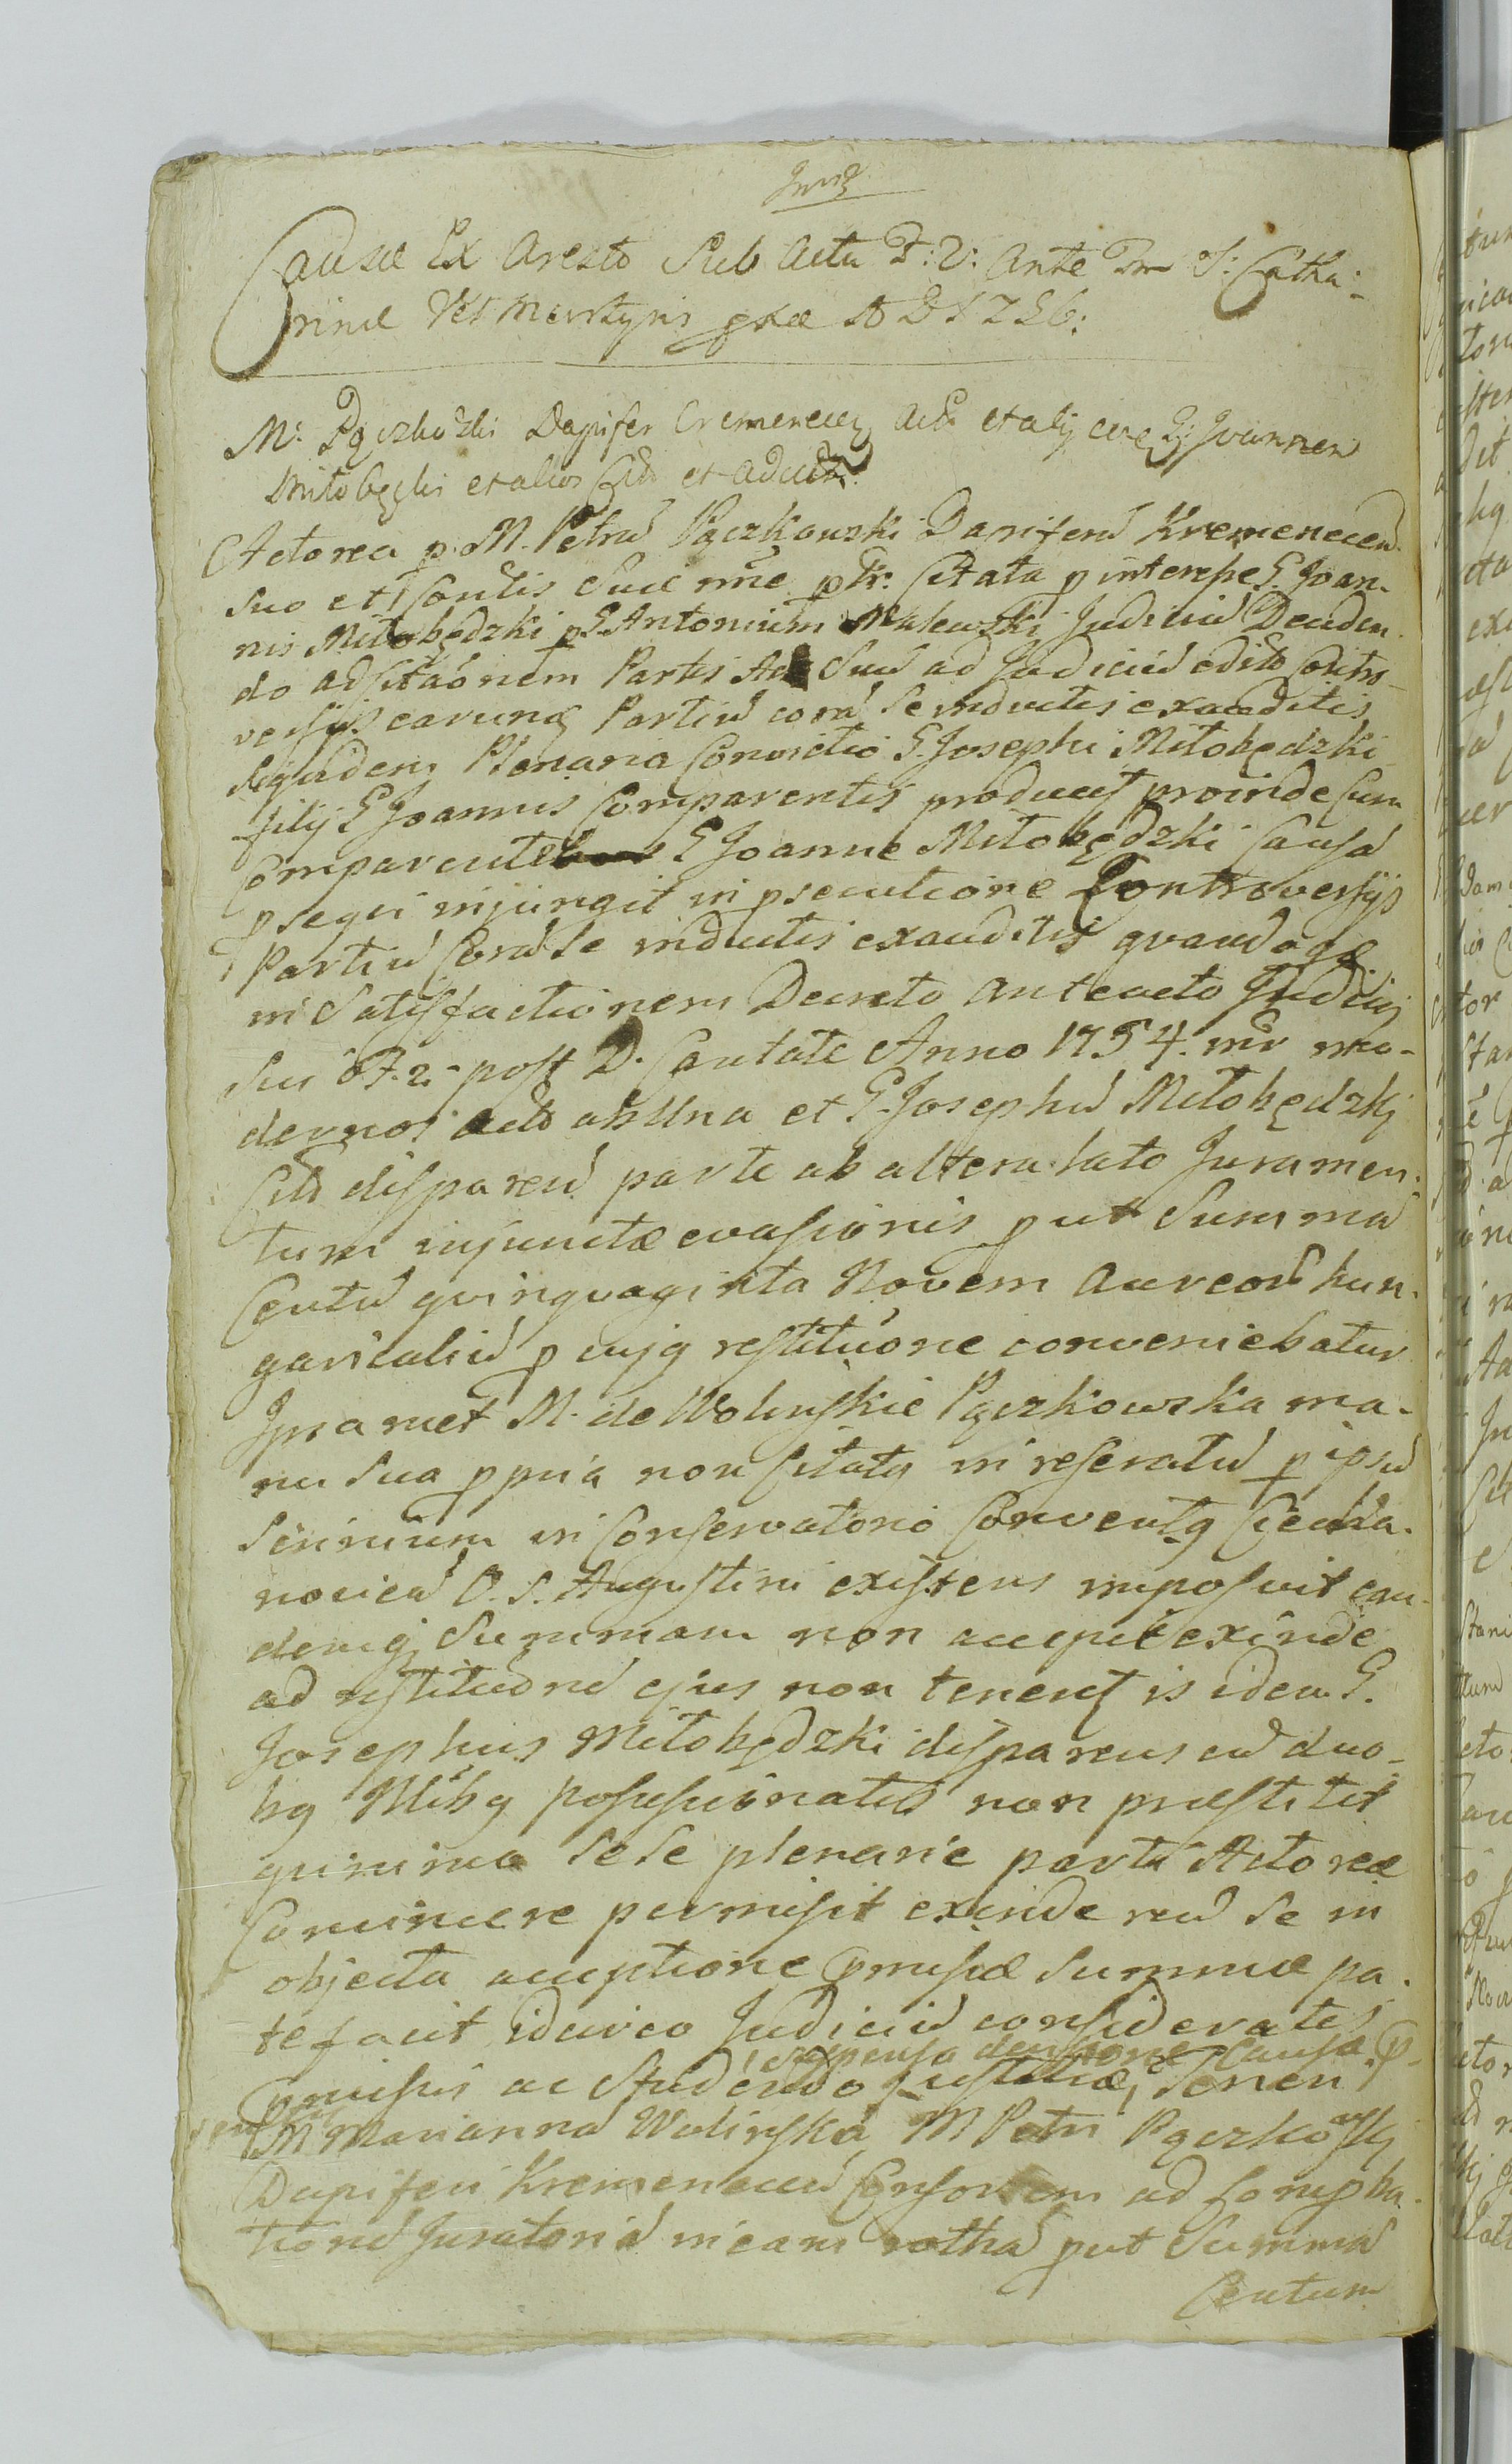 Causæ Ex Aresto Sub Actu F: V: Ante Fm S: Catha:
rinæ V et Martyris A D 1756:
M: Pączkoski Dapifer Cremenecen Act et alij cire G: Joannen
Miłobęcki et alios Citt et
Actorea p. M. Petrũ Pączkowski Dapiferũ Kremenecen
suo et Consortis Suæ nñe ptr. Citata p interesse G. Joan-
nis Miłobędzki p G. Antonium Malewski Judiciũ Deciden
do ad Citãonem Partis Suũ ad Judiciũ edito Contro-
versijs earunq Partiũ corã Se inductis exauditis
siquidem Plenaria Convictio G. Josephi Miłobędzki
filij G Joannis Comparentis producit proinde Cum
Comparente G Joanne Miłobędzki Causã
psequi injungit in psecutione Controversijs
Partiũ Corã Se inductis exauditis quandoqe
in Satisfactionem Decreto Anteacto Judicij
sui F. 2. post D. Cantate Anno 1754. mo-
dernos acto ab Una et G. Josephũ Miłobędzkj
Citt disparenũ parte ab altera lato Juramen-
tum injunctæ evasionis put Summã
Centũ quinquaginta Novem Aureor hun-
garicaliũ p cujq restituõne conveniebatur
Ipsamet M. de Wolinskie Pączkowska ma-
nu Sua ppria non Citatq in reseratũ p ipsũ
Scrinium in Conservatorio Conventq Ciecha-
novieceñ O. S. Augustini existens imposuit ean-
demq Summam non accepit exinde
ad restituõnẽ ejus non tenetur is idem G.
Josephus Miłobędzki disparens cũ duo-
bq Nlibq possessionatis non præstitit
quinimo Se Se plenarie parti Actoreæ
Convincere permisit exinde reũ Se in
objecta acceptione pmissæ Summæ pa-
tefacit idcirco Judiciũ consideratis
suspensa densione Causa p-
pmissis ac Studendo Justitiæ,
M Mariannã Wolinska M Petri Pączkowskj
Dapiferi Kremeneceñ Consortem ad Compba-
tionẽ Juratoriã in eam rothã put Summã
Centum